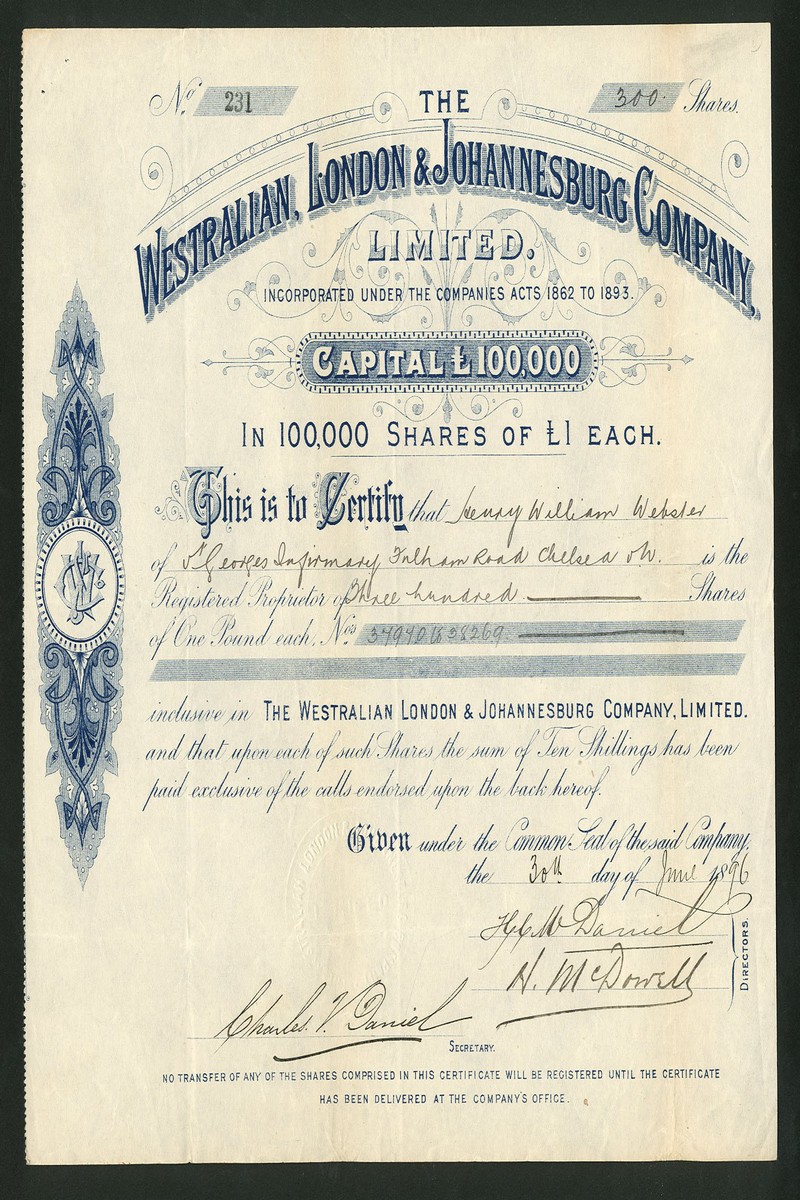 No 231
300 Shares.
THE
WESTRALIAN, LONDON & JOHANNESBURG COMPANY,
LIMITED.
INCORPORATED UNDER THE COMPANIES ACTS 1862 TO 1893.
CAPITAL £100,000
IN 100,000 SHARES OF £1 EACH.
This is to Certify that Henry William Webster
of St Georges Infirmary Fulham Road Chelsea SW. is the
Registered Proprietor of Three hundred Shares
of One Pound each, Nos 37970 to 38269.
inclusive in THE WESTRALIAN LONDON & JOHANNESBURG COMPANY, LIMITED.
and that upon each of such Shares the sum of Ten Shillings has been
paid exclusive of the calls endorsed upon the back hereof.
Given under the Common Seal of the said Company,
the 30th day of June 1896
Daniel
H. McDowell
DIRECTORS.
Charles V. Daniel
SECRETARY.
NO TRANSFER OF ANY OF THE SHARES COMPRISED IN THIS CERTIFICATE WILL BE REGISTERED UNTIL THE CERTIFICATE
HAS BEEN DELIVERED AT THE COMPANY'S OFFICE.